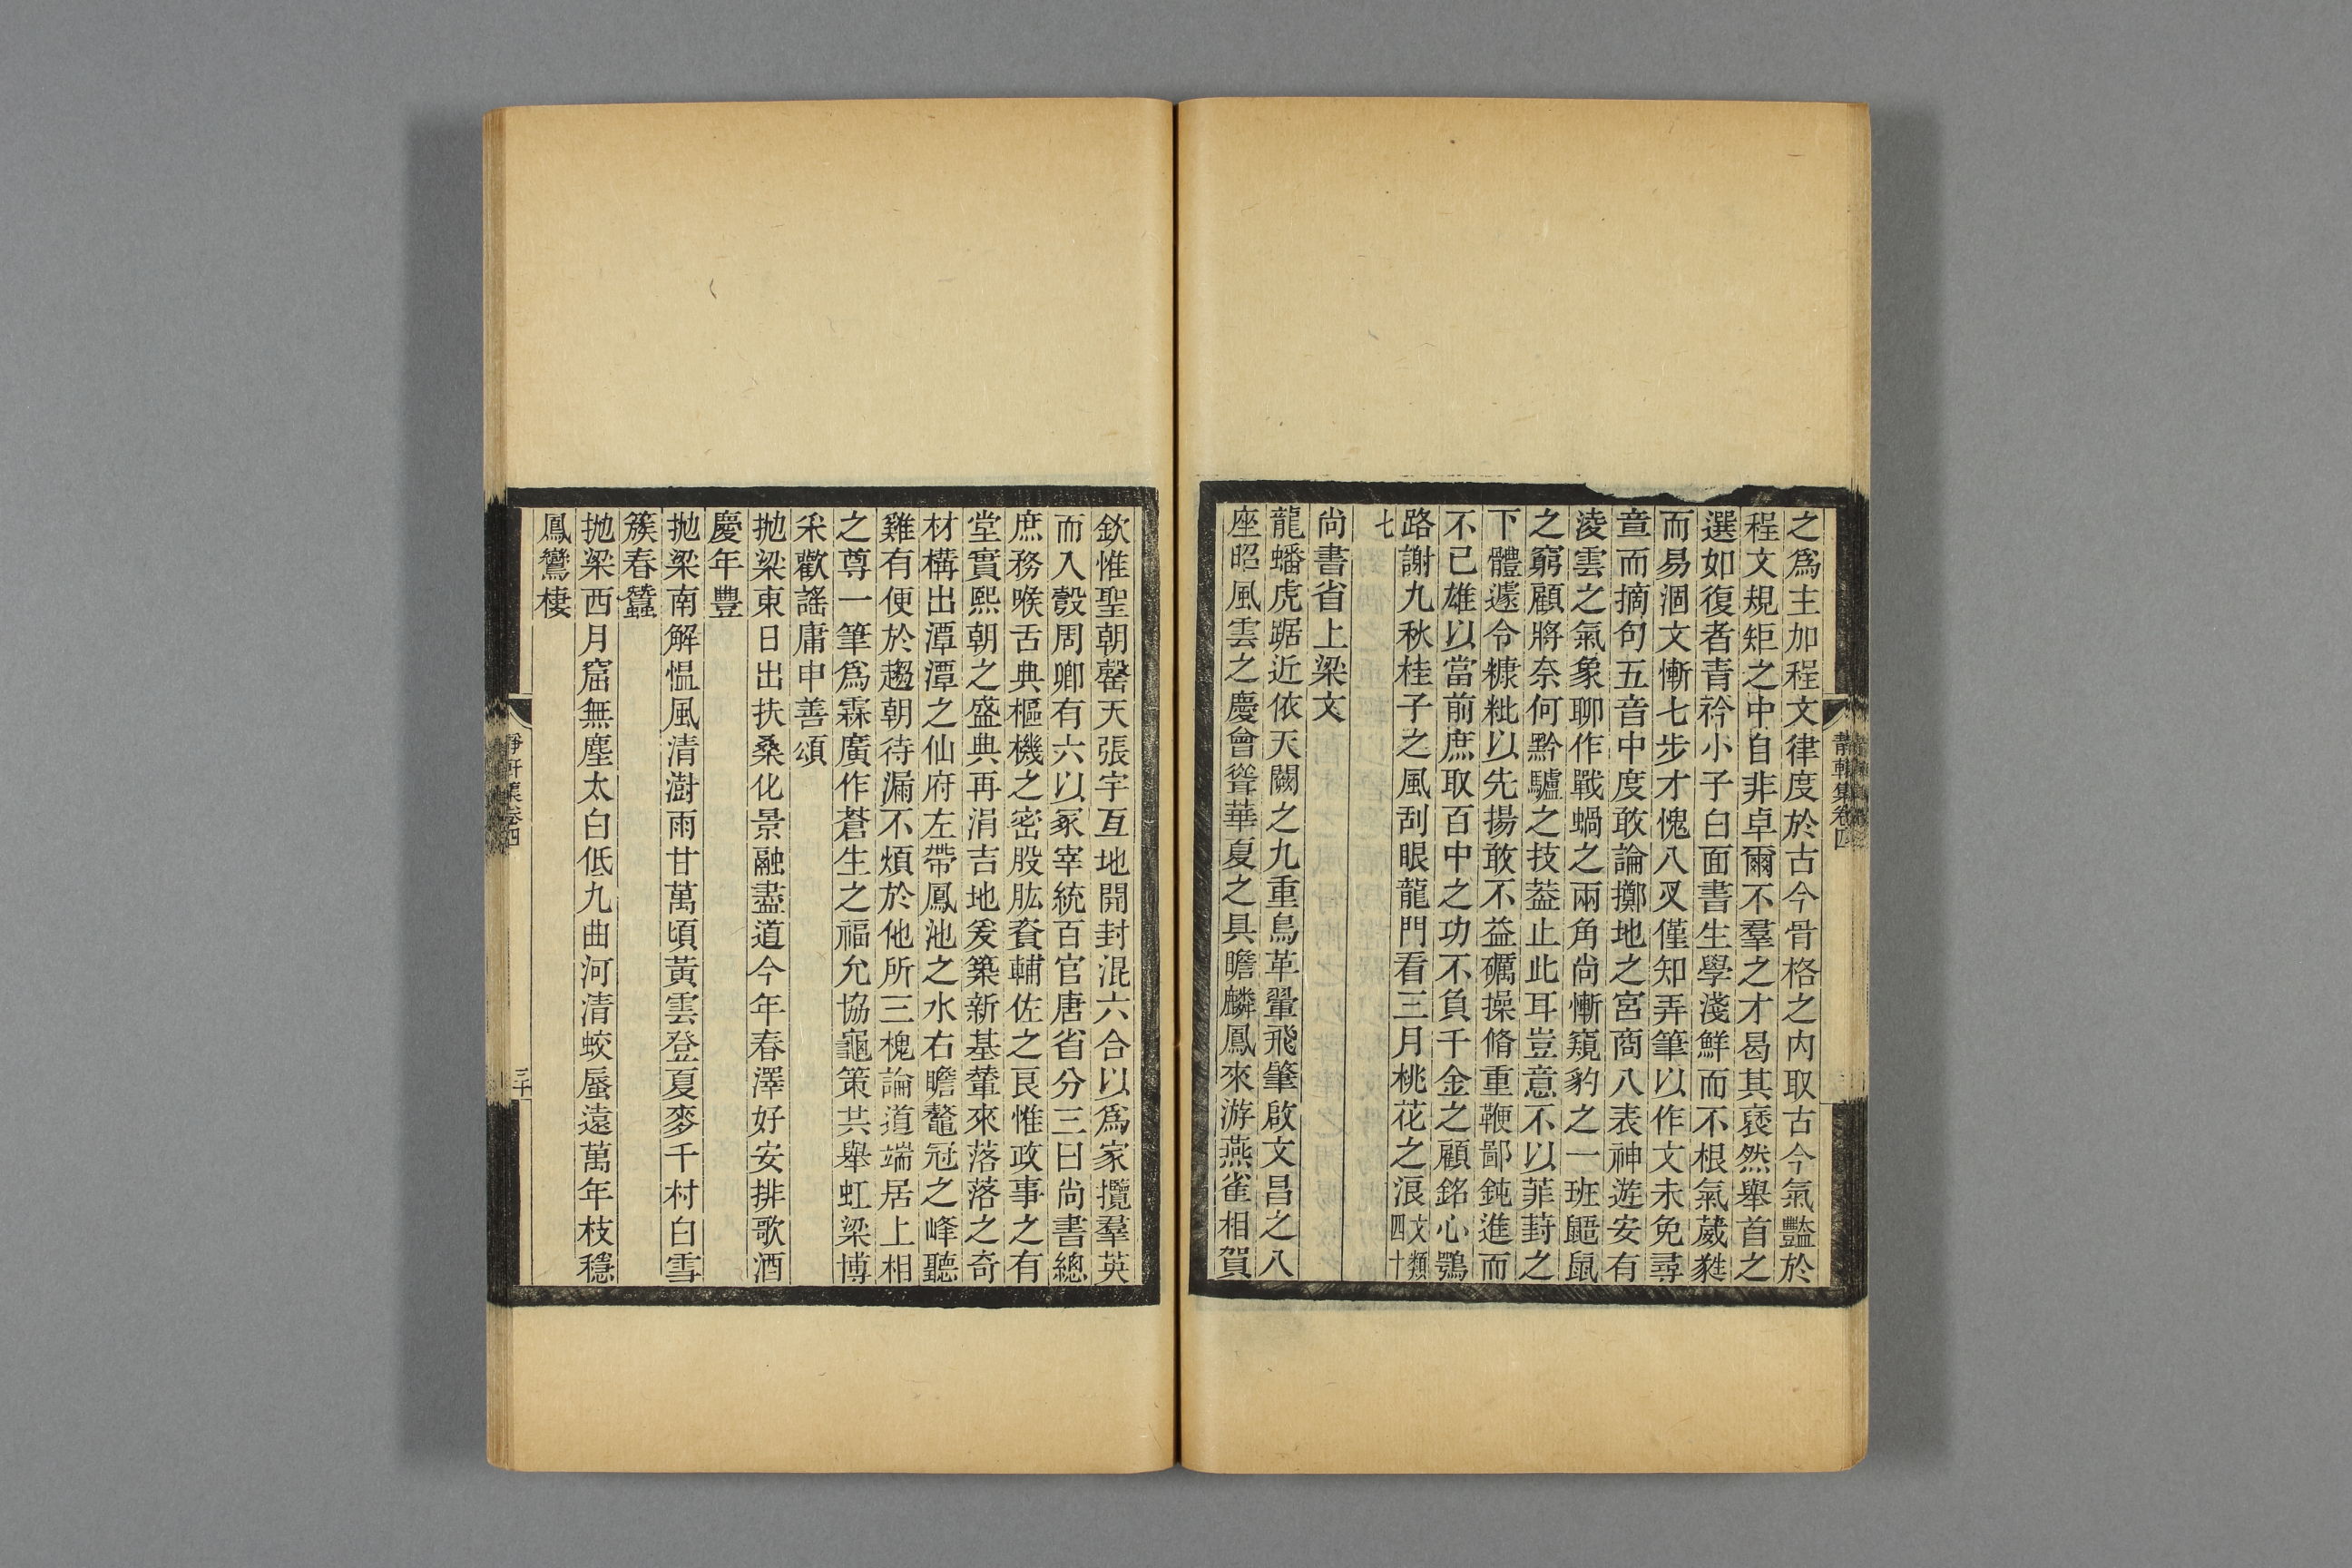 之爲主加程文律度於古今骨格之内取古今氣豔於
程文規矩之中自非卓爾不羣之才曷其襃然舉首之
選如復者青衿小子白面書生學淺鮮而不根氣葳蕤
而易涸文慚七步才愧八叉僅知弄筆以作文未免尋
章而摘句五音中度敢論擲地之宮商八表神遊安有
淩雲之氣象聊作戰蝸之兩角尚慚窺豹之一班鼫鼠
之窮顧將奈何黔驢之技葢止此耳豈意不以菲葑之
下體遽令糠粃以先揚敢不益礪操脩重鞭鄙鈍進而
不已雄以當前庶取百中之功不負千金之顧銘心鶚
路謝九秋桂子之風刮眼龍門看三月桃花之浪文類四十
七
尚書省上梁文
龍蟠虎踞近依天闕之九重鳥革翬飛肇啟文昌之八
座昭風雲之慶會聳華夏之具瞻麟鳳來游燕雀相賀
欽惟聖朝罄天張宇亙地開封混六合以爲家攬羣英
而入彀周卿有六以冢宰統百官唐省分三曰尚書總
庶務喉舌典樞機之密股肱賚輔佐之良惟政事之有
堂實熙朝之盛典再涓吉地爰築新基輦來落落之奇
材構出潭潭之仙府左帶鳳池之水右瞻鼇冠之峰聽
雞有便於趨朝待漏不煩於他所三槐論道端居上相
之尊一筆爲霖廣作蒼生之福允協龜策共舉虹梁博
采歡謠庸申善頌
抛梁東日出扶桑化景融盡道今年春澤好安排歌酒
慶年豐
抛梁南解慍風清澍雨甘萬頃黃雲登夏麥千村白雪
簇春蠶
抛梁西月窟無塵太白低九曲河清蛟蜃遠萬年枝穩
鳳鸞棲
靜軒集卷四
三十